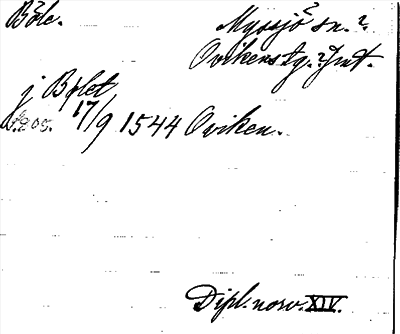 Böle.
Myssjö sn.?
Ovikens tg.? Jmt.
j Bölet
s. 205. 17/9 1544 Oviken.
Dipl. norv. XIV.